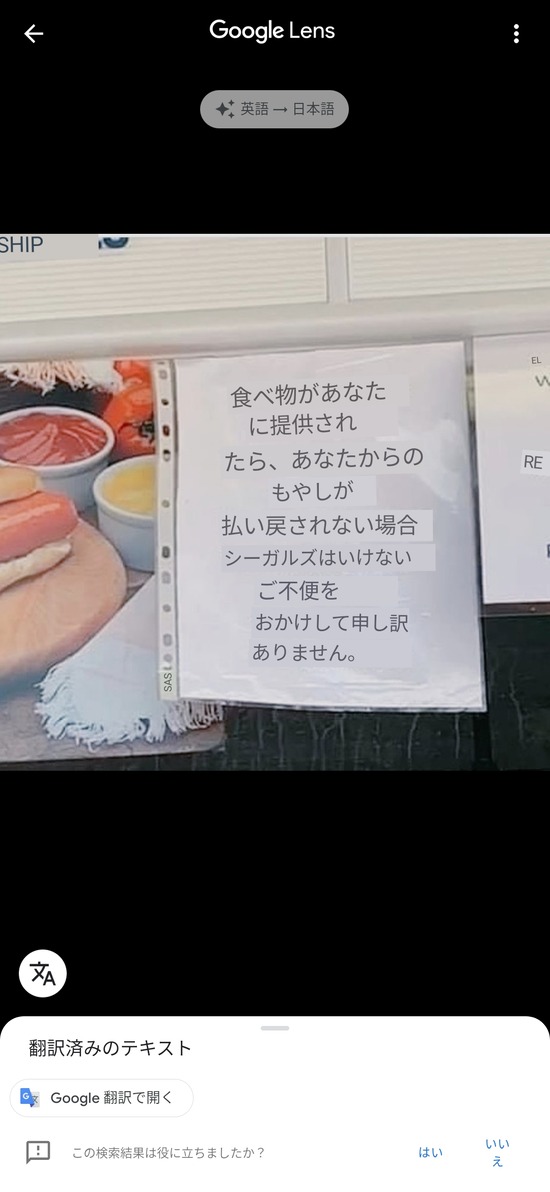 Google Lens
英語 → 日本語
SHIP
食べ物があなた
に提供され
たら、あなたからの
もやしが
払い戻されない場合
シーガルズはいけない
ご不便を
おかけして申し訳
ありません。
SAS
EL
W
RE
翻訳済みのテキスト
Google 翻訳で開く
この検索結果は役に立ちましたか？
はい
いい
え